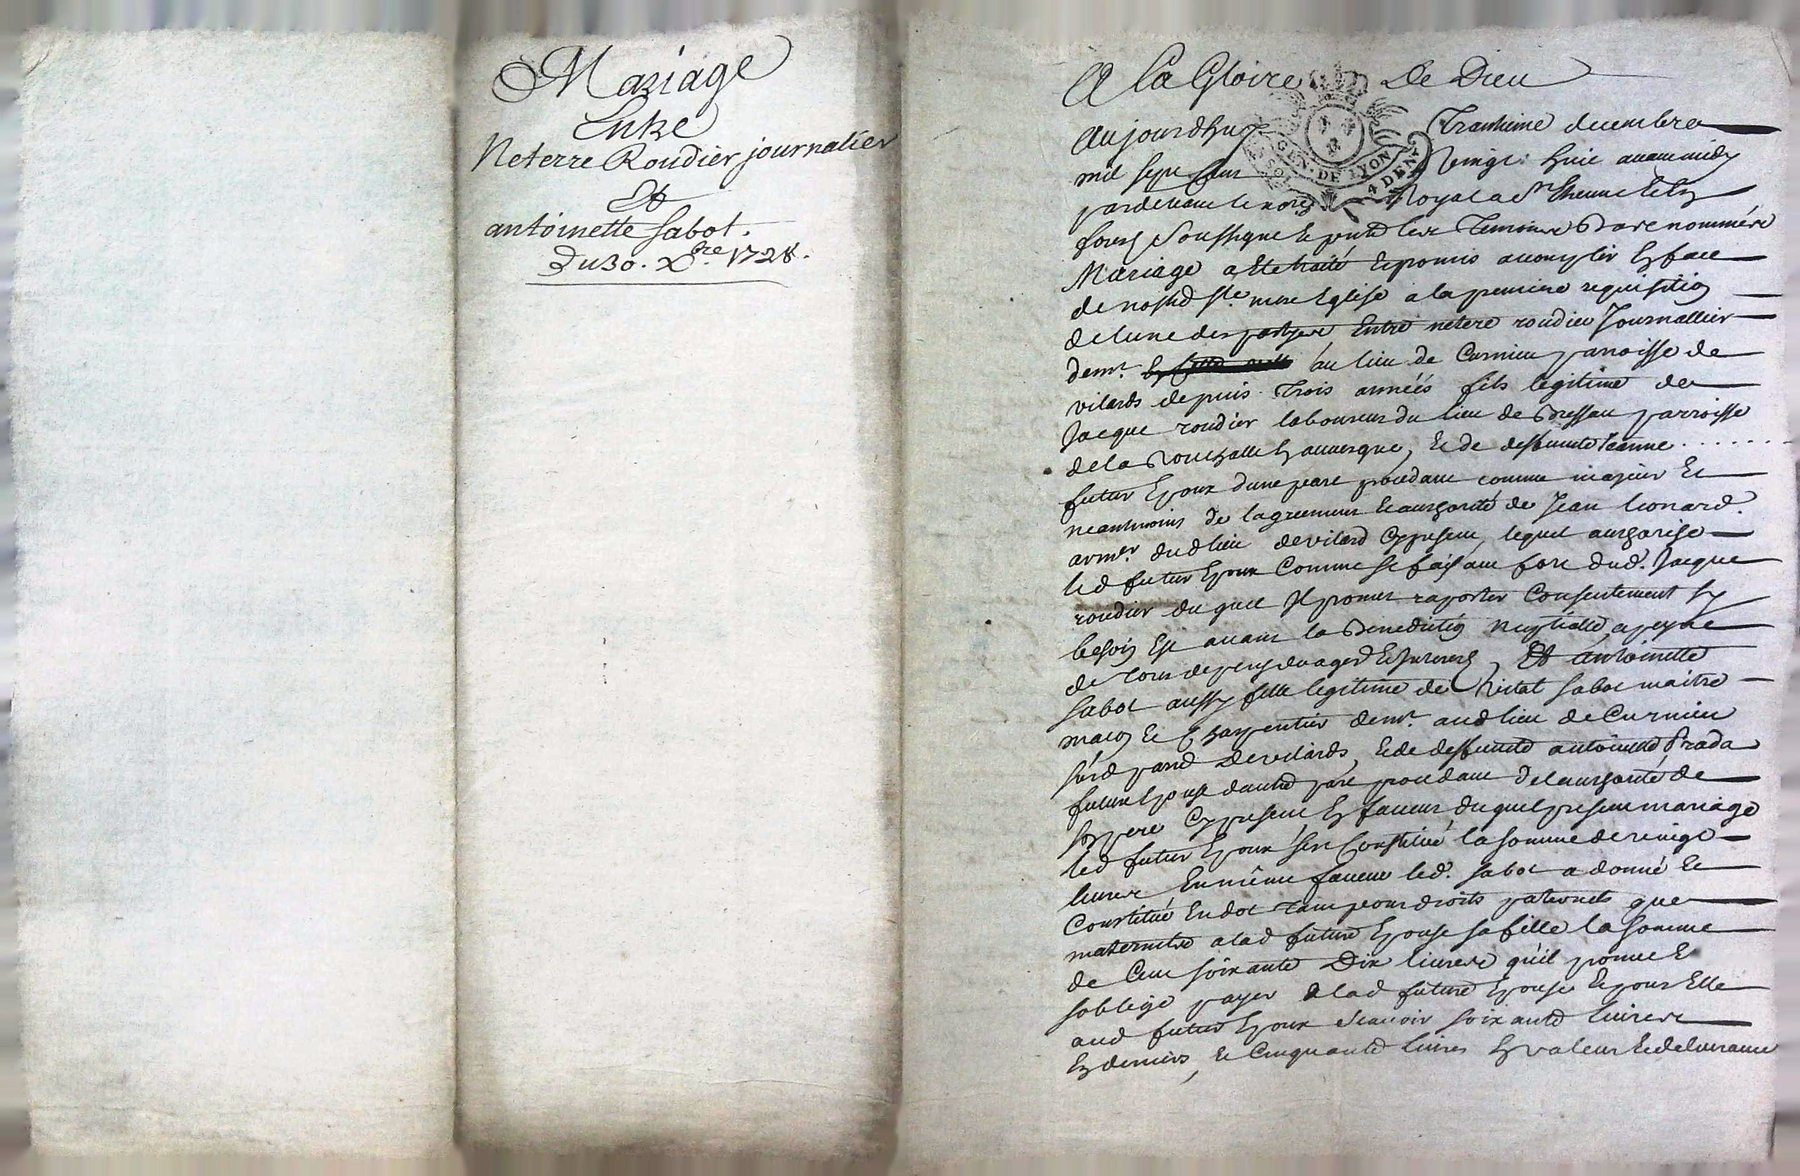 Mariage
Entre
Neterre Roudier journalier
Et
antoinette Sabot.
Du 30. Xbre 1728.
A La Gloire De Dieu
Aujourdhuy Trantieme decembre
mil sept cens vingt huit avant midy
pardevant le no.re Royal a St Etienne en
forest soussigné et pnts les Temoins bas nommés
Mariage a eté traité et promis accomplir en face
de nostre Ste mere Eglise a la premiere requisition
de lune des partyes Entre netere roudier Journallier
demt au lieu de Curnieu parroisse de
vilards depuis Trois années fils legitime de
Jacque roudier laboureur du lieu de parroisse
de la en auvergne, et de deffunte Jeanne . . . . . . .
futur Epoux dune part procedant comme majeur Et
neantmoins de lagreement et authorité de Jean Leonard.
armer dud lieu de vilard cy present, lequel authorise
led futur Epoux Comme se faisant fort dud. Jacque
roudier du quel Il promet raporter Consentement sy
besoin Est avant la Benediction nuptialle a peyne
de tous depens domages Et Interests, Et antoinette
Sabot aussy fille legitime de Vital Sabot maitre
maçon et Charpentier demt aud lieu de Curnieu
susd parr de vilards, et de deffunte antoinette Prada
future Epouse dautre part procedant de lauthorité de
son pere cy present, En faveur duquel present mariage
led futur Epoux sest Constitué la somme de vingt
livres En même faveur led. Sabot a donné et
Constitué En dot tant pour droits paternels que
maternels a lad future Epouse sa fille la somme
de Cent soixante Dix livres qu'il promet Et
soblige payer a lad future Epouse et pour Elle
aud futur Epoux scavoir soixante livres
En deniers, et Cinquante livres En valeur et delivrance
GEN. DE LYON
4 DEN